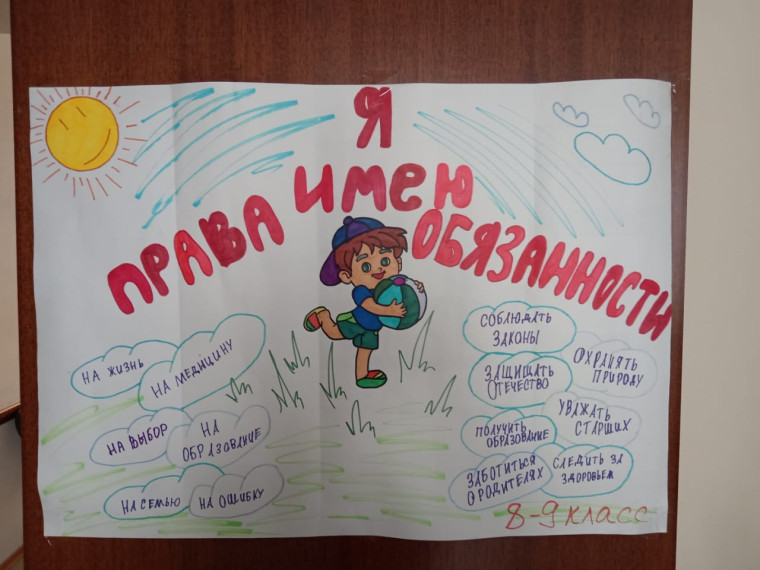 Я
имею
ПРАВА
ОБЯЗАННОСТИ
НА ЖИЗНЬ
НА МЕДИЦИНУ
НА ВЫБОР
НА
ОБРАЗОВАНИЕ
НА СЕМЬЮ
НА ОШИБКУ
СОБЛЮДАТЬ
ЗАКОНЫ
ОХРАНЯТЬ
ПРИРОДУ
ЗАЩИЩАТЬ
ОТЕЧЕСТВО
УВАЖАТЬ
СТАРШИХ
ПОЛУЧИТЬ
ОБРАЗОВАНИЕ
ЗАБОТИТЬСЯ
О РОДИТЕЛЯХ
СЛЕДИТЬ ЗА
ЗДОРОВЬЕМ
8-9 класс